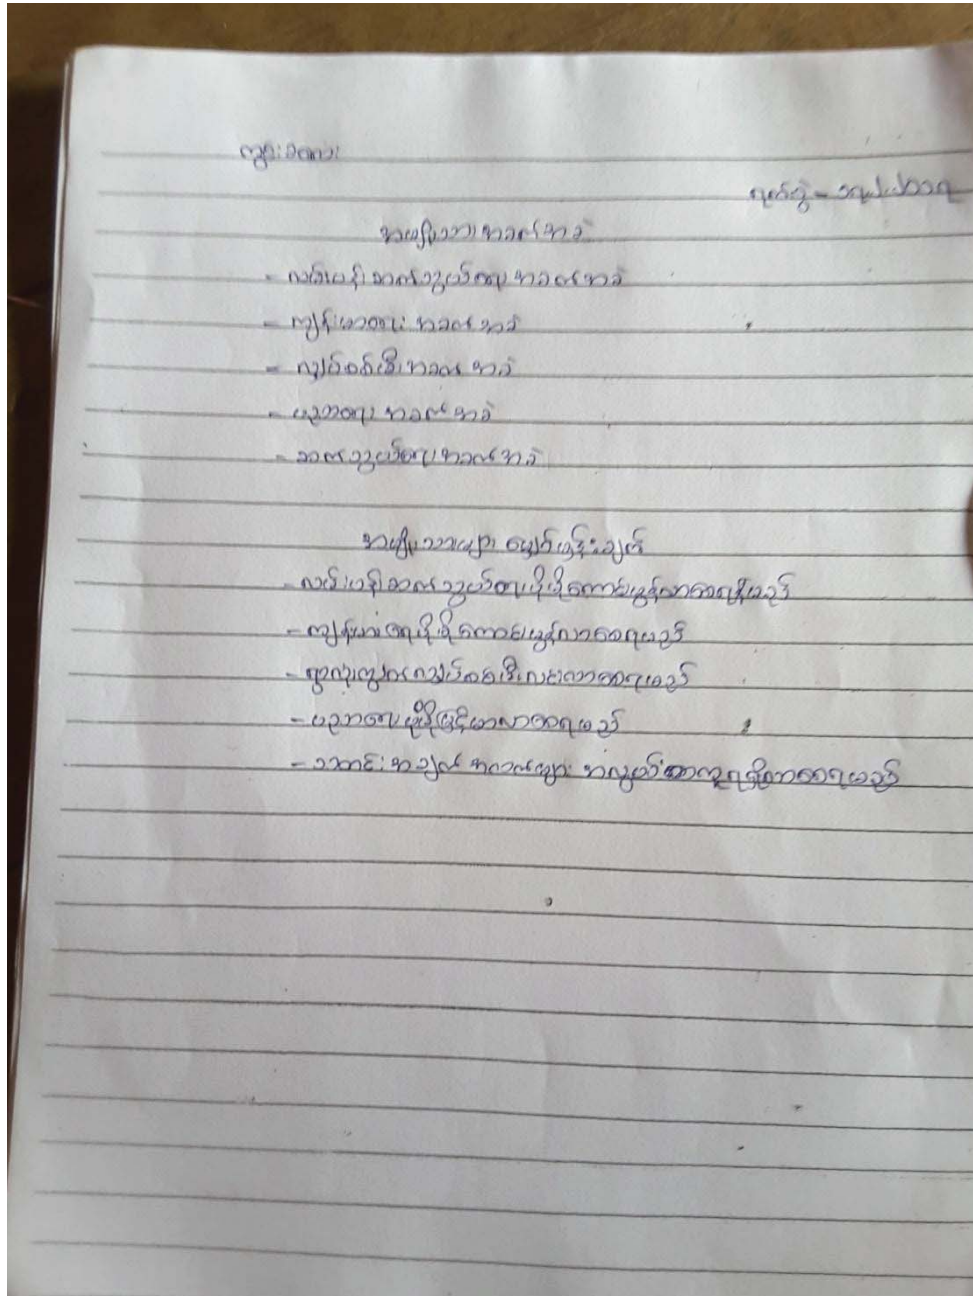 ကျွဲးခလေး
ရက်စွဲ -
အမျိုးသား အခက်အခဲ
- လမ်းပန်းဆက်သွယ်ရေး အခက်အခဲ
- ကျန်းမာရေး အခက်အခဲ
- လျှပ်စစ်မီး အခက်အခဲ
- ပညာရေး အခက်အခဲ
- ဆက်သွယ်ရေး အခက်အခဲ
အမျိုးသားများ မျှော်မှန်းချက်
- လမ်းပန်းဆက်သွယ်ရေး ပိုမိုကောင်းမွန်လာစေရမည်
- ကျန်းမာရေး ပိုမိုကောင်းမွန်လာစေရမည်
- ရွာလုံးကျွတ် လျှပ်စစ်မီးလင်းလာစေရမည်
- ပညာရေး ပိုမိုမြင့်မားလာစေရမည်
- သတင်းအချက်အလက်များ အလွယ်တကူရရှိလာစေရမည်